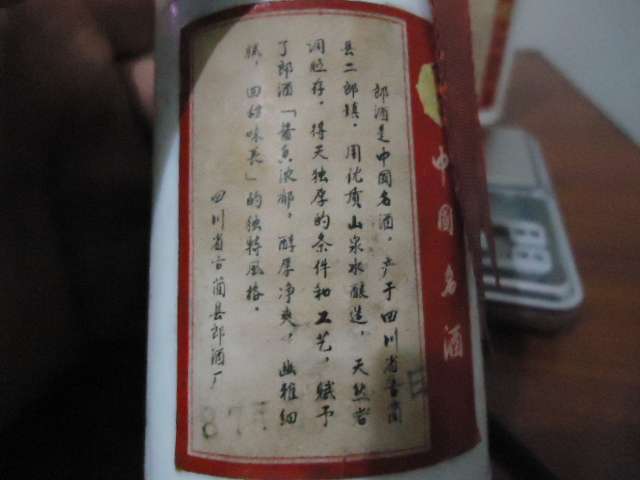 郎酒是中国名酒，产于四川省古蔺
县二郎镇，用优质山泉水酿造，天然岩
洞贮存，得天独厚的条件和工艺，赋予
了郎酒「酱香浓郁，醇厚净爽，幽雅细
腻，回甜味长」的独特风格。
四川省古蔺县郎酒厂
87
中國名酒